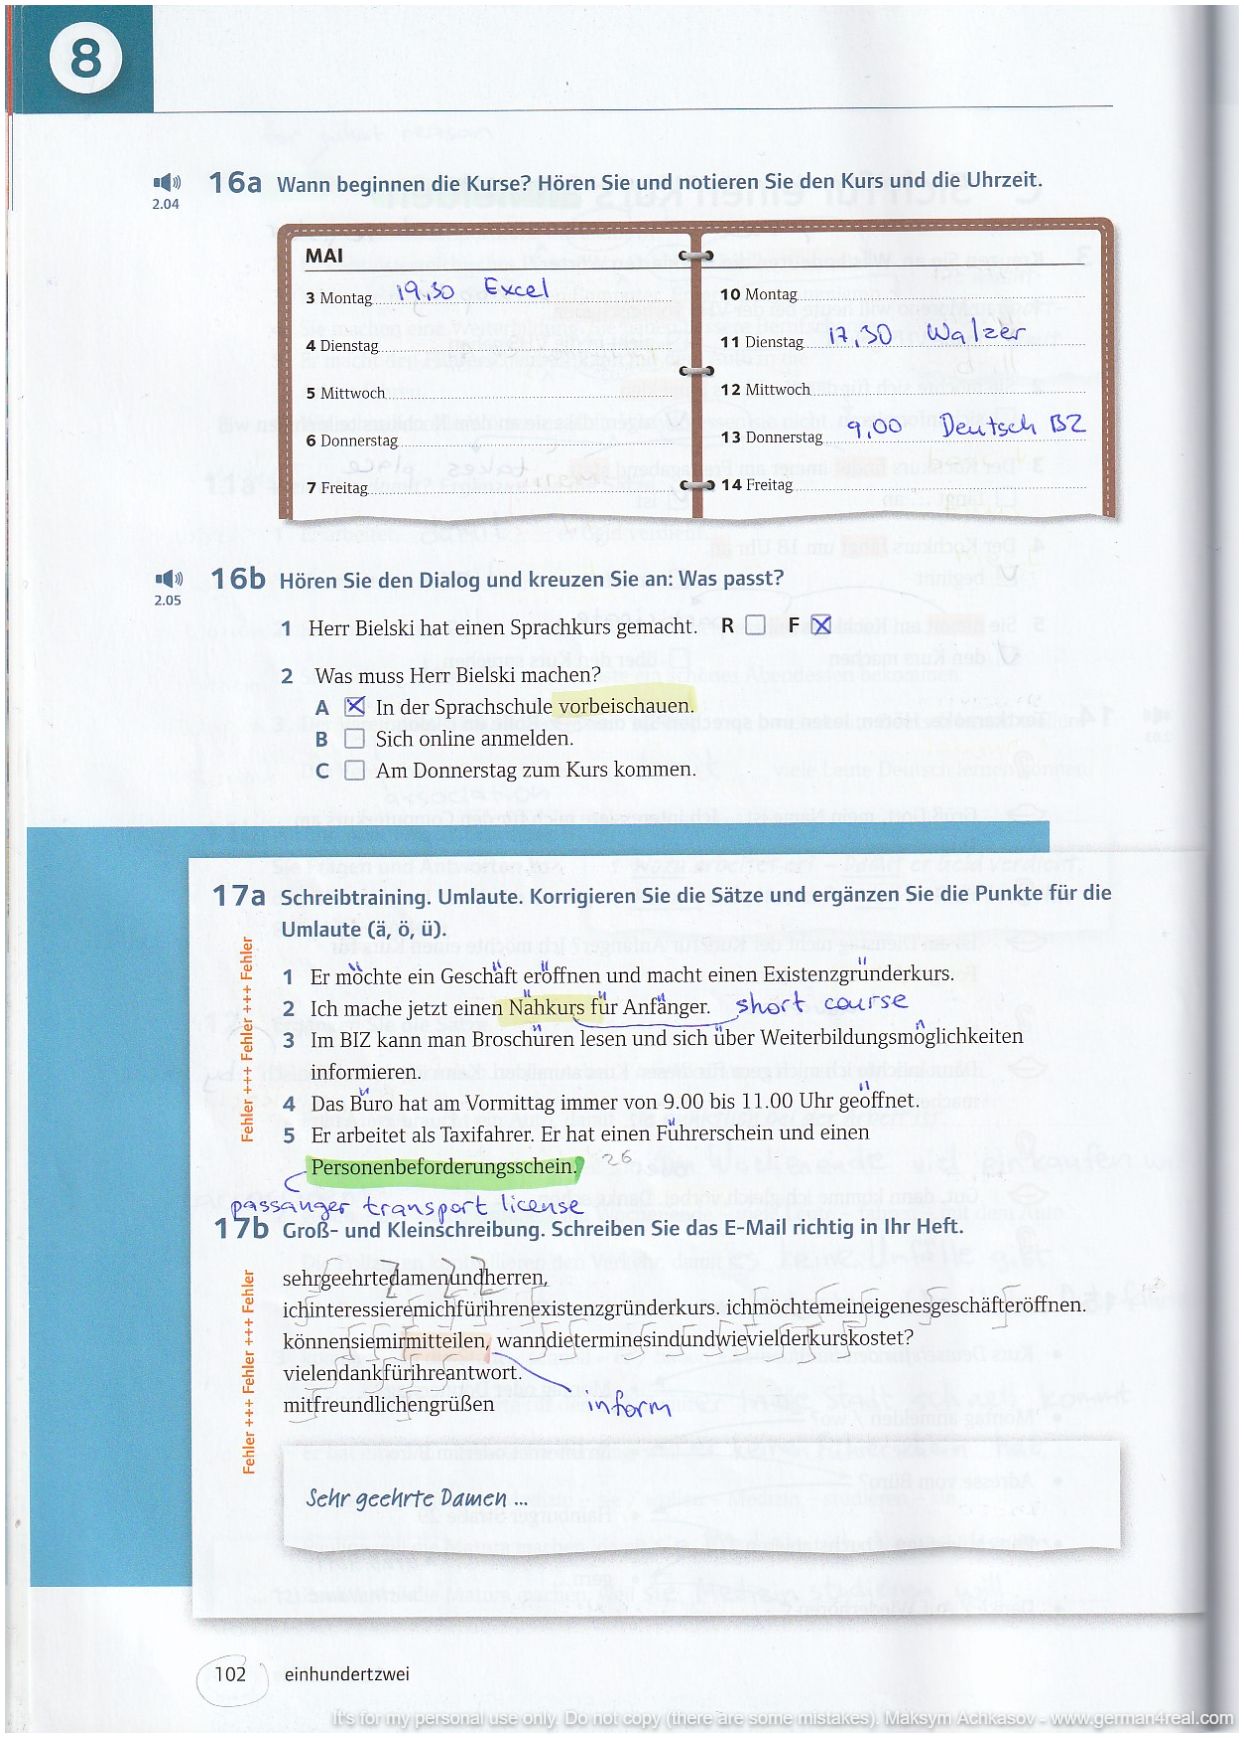 8
2.04
16a Wann beginnen die Kurse? Hören Sie und notieren Sie den Kurs und die Uhrzeit.
MAI
3 Montag 19.30 Excel
4 Dienstag
5 Mittwoch
6 Donnerstag
7 Freitag
10 Montag
11 Dienstag 17.30 Walzer
12 Mittwoch
13 Donnerstag 9.00 Deutsch B2
14 Freitag
2.05
16b Hören Sie den Dialog und kreuzen Sie an: Was passt?
1 Herr Bielski hat einen Sprachkurs gemacht. R F
2 Was muss Herr Bielski machen?
A In der Sprachschule vorbeischauen.
B Sich online anmelden.
C Am Donnerstag zum Kurs kommen.
17a Schreibtraining. Umlaute. Korrigieren Sie die Sätze und ergänzen Sie die Punkte für die
Umlaute (ä, ö, ü).
Fehler +++ Fehler +++ Fehler
1 Er möchte ein Geschäft eröffnen und macht einen Existenzgründerkurs.
2 Ich mache jetzt einen Nähkurs für Anfänger. short course
3 Im BIZ kann man Broschüren lesen und sich über Weiterbildungsmöglichkeiten
informieren.
4 Das Büro hat am Vormittag immer von 9.00 bis 11.00 Uhr geöffnet.
5 Er arbeitet als Taxifahrer. Er hat einen Führerschein und einen
Personenbeforderungsschein. 26
passanger transport license
17b Groß- und Kleinschreibung. Schreiben Sie das E-Mail richtig in Ihr Heft.
Fehler +++ Fehler +++ Fehler
sehrgeehrtedamenundherren,
ichinteressieremichfürihrenexistenzgründerkurs. ichmöchtemeineigenesgeschäfteröffnen.
könnensiemirmitteilen, wanndieterminesindundwievielderkurskostet?
vielendankfürihreantwort.
mitfreundlichengrüßen
inform
Sehr geehrte Damen ...
102 einhundertzwei
It's for my personal use only. Do not copy (there are some mistakes). Maksym Achkasov - www.german4real.com